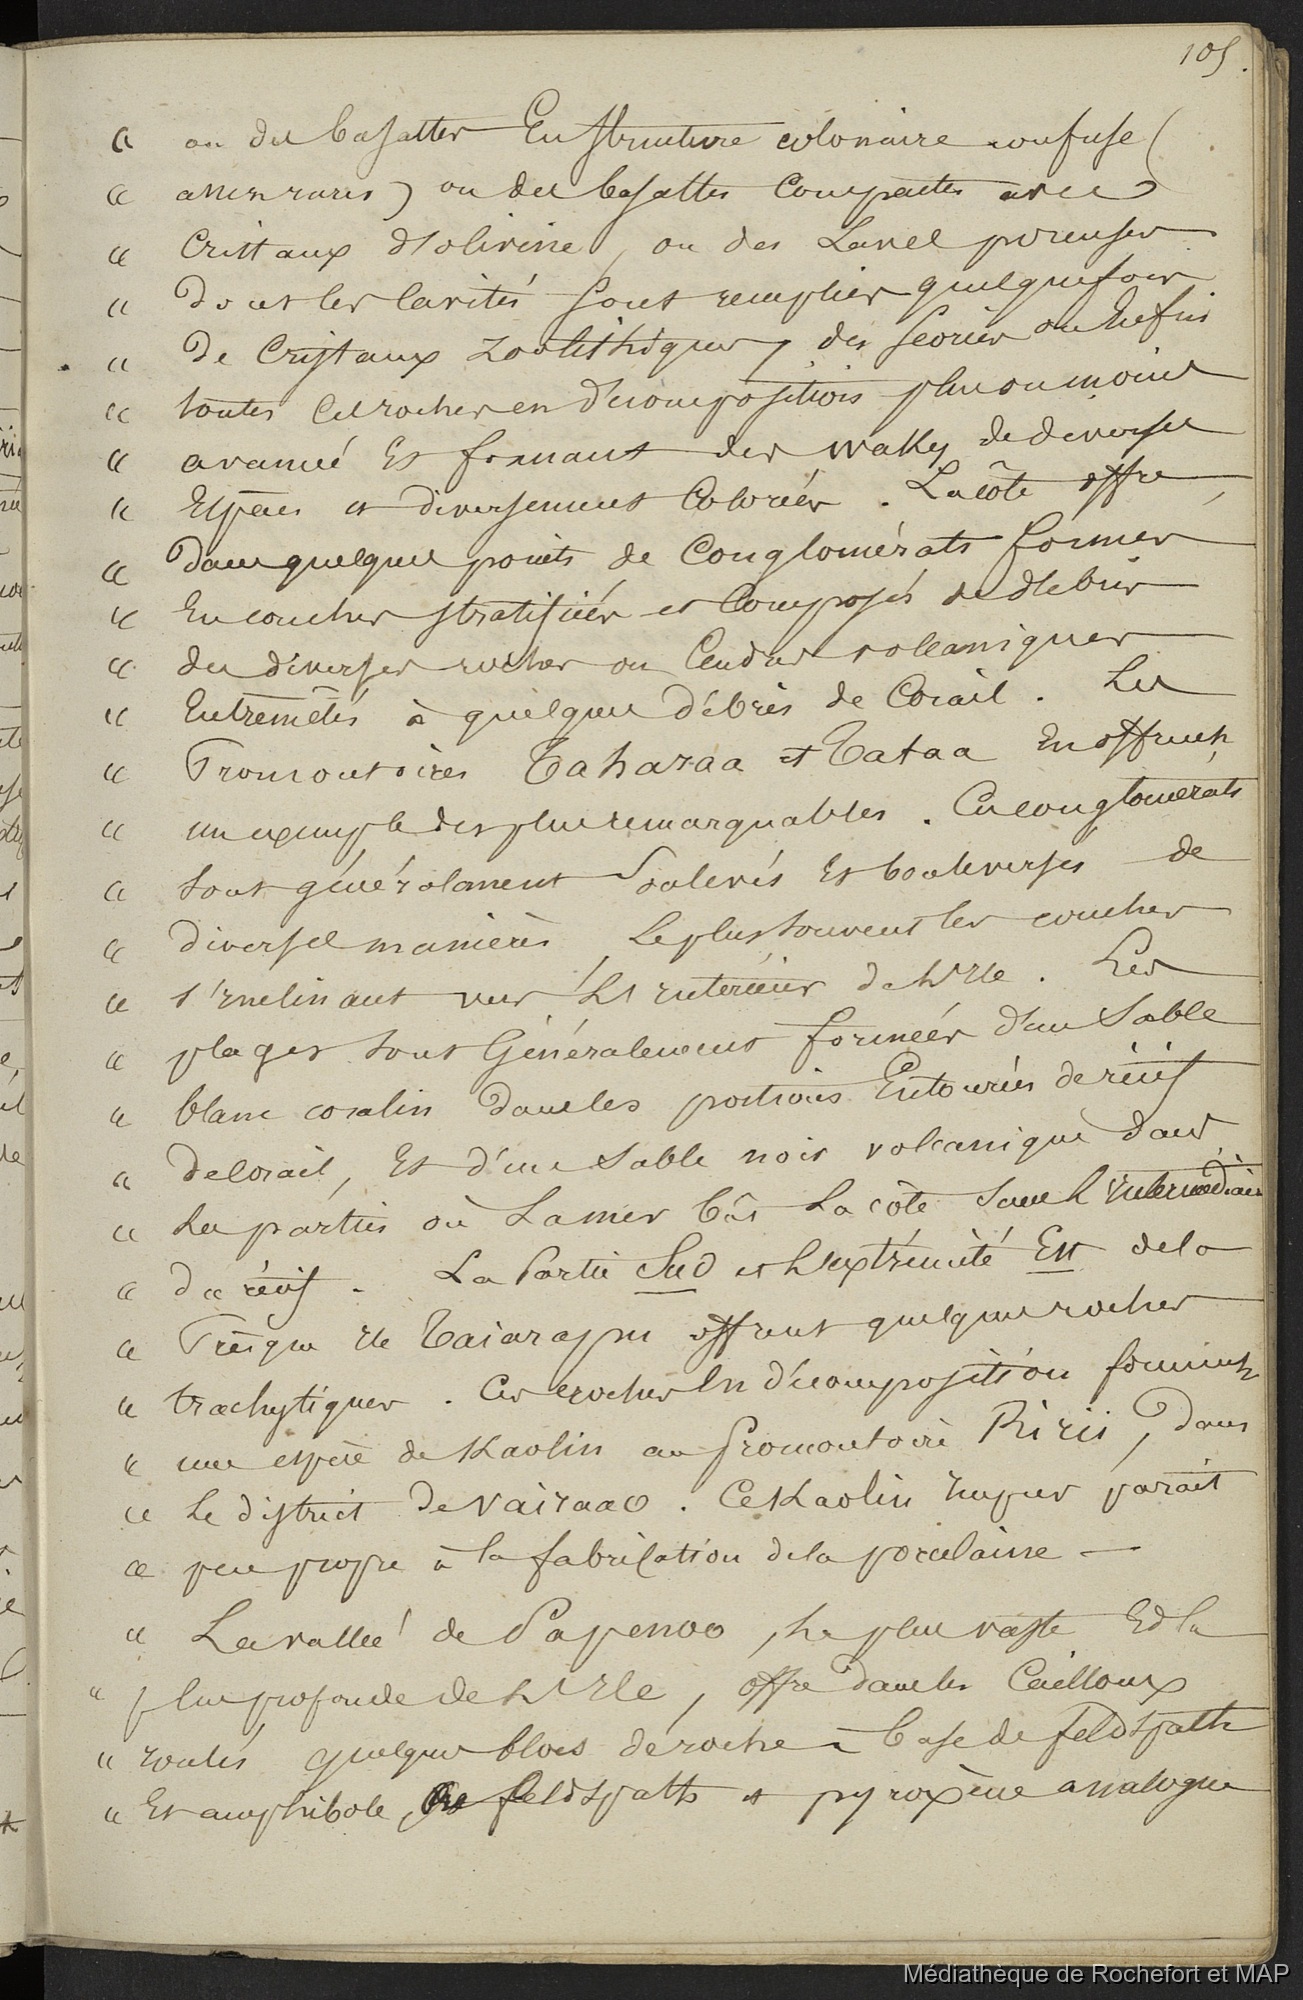 105.
" ou des basaltes En structure colonaire confuse (
" assez rares) ou des basaltes Compactes avec
" Cristaux d'olivine, ou des Laves poreuses
" Dont les cavités sont remplies quelquefois
" De Cristaux zoolithiques, des scories ou Enfin
" toutes Ces roches en décomposition plus ou moins
" avancée Et formant des waky de diverses
" Espèces et diversement Colorées. La côte offre
" Dans quelques points de Conglomérats formés
" En couches stratifiées et Composés de débris
" des diverses roches ou Cendres volcaniques
" Entremêlés à quelques Débris de Corail. Les
" Promontoires Taharaa et Tataa En offrent
" un exemple des plus remarquables. Ces conglomérats
" sont généralement soulevés Et bouleversés de
" diverses manières, Le plus souvent les couches
" s'inclinant vers l'Intérieur de l'Ile. Les
" plages sont Généralement formées d'un Sable
" blanc coralin dans les portions Entourées de récifs
" de Corail, Et d'un Sable noir volcanique dans
" Les parties où La mer bat La côte sans l'Intermédiaire
" de récifs. La Partie Sud et L'extrémité Est de la
" Presqu'Ile Taiarapu offrent quelques roches
" trachytiques. Ces roches En décomposition forment
" une espèce de Kaolin au Promontoire Ririi, Dans
" Le district de Vairaao. Ce Kaolin Impur parait
" peu propre à la fabrication de la porcelaine —
" La vallée de Papenoo, la plus vaste Et la
" plus profonde de L'Ile, offre dans les Cailloux
" roulés quelques blocs de roche à base de feldspath
" Et amphibole, de feldspath et pyroxène analogue
Médiathèque de Rochefort et MAP